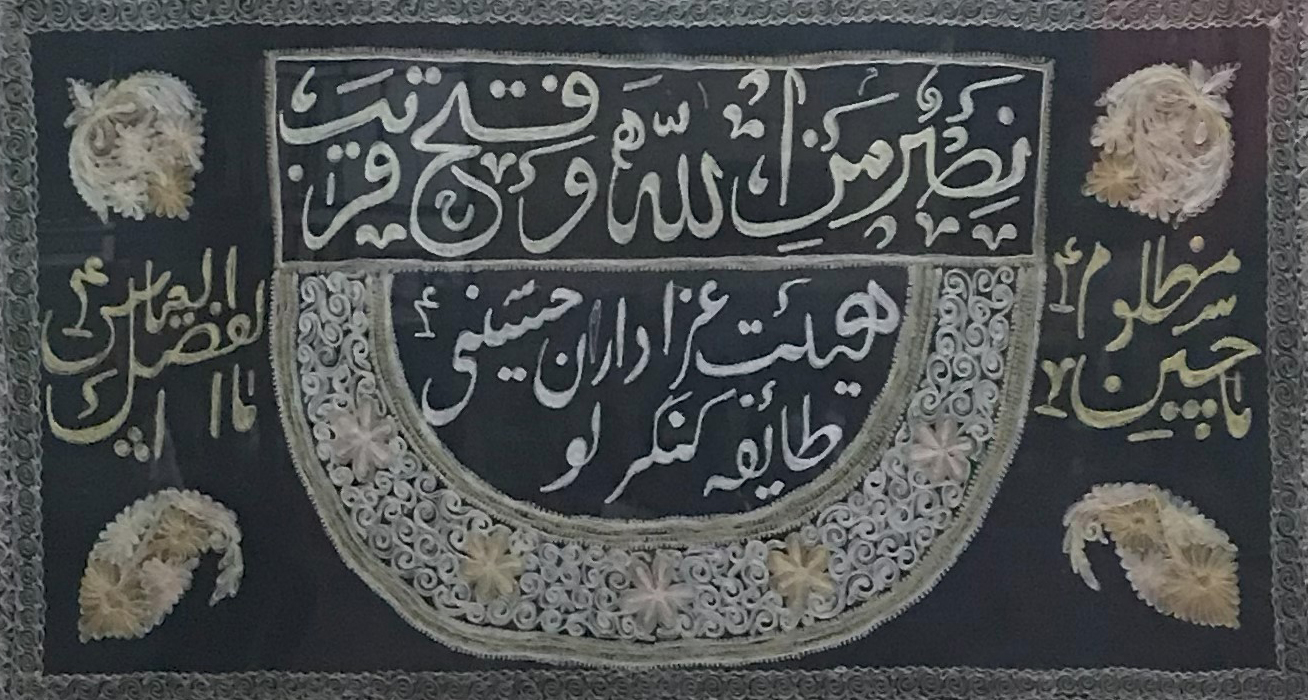 نَصْرٌ مِنَ اللّهِ وَ فَتْحٌ قَریبٌ
هیئت عزاداران حسینی ع
طائفه کنگرلو
یا حسین مظلوم ع
یا اباالفضل العباس ع